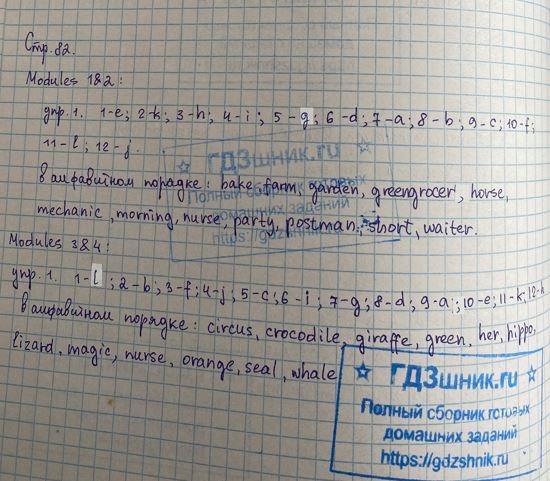 Стр. 82.
Modules 1&2:
упр. 1. 1-e; 2-k; 3-h; 4-i; 5-g; 6-d; 7-a; 8-b; 9-c; 10-f;
11-l; 12-j.
ГДЗшник.ru
Полный сборник готовых
домашних заданий
https://gdzshnik.ru
В алфавитном порядке: bake, farm, garden, greengrocer, horse,
mechanic, morning, nurse, party, postman, short, waiter.
Modules 3&4:
упр. 1. 1-l; 2-b; 3-f; 4-j; 5-c; 6-i; 7-g; 8-d; 9-a; 10-e; 11-k; 12-h
В алфавитном порядке: circus, crocodile, giraffe, green, her, hippo,
lizard, magic, nurse, orange, seal, whale
ГДЗшник.ru
Полный сборник готовых
домашних заданий
https://gdzshnik.ru